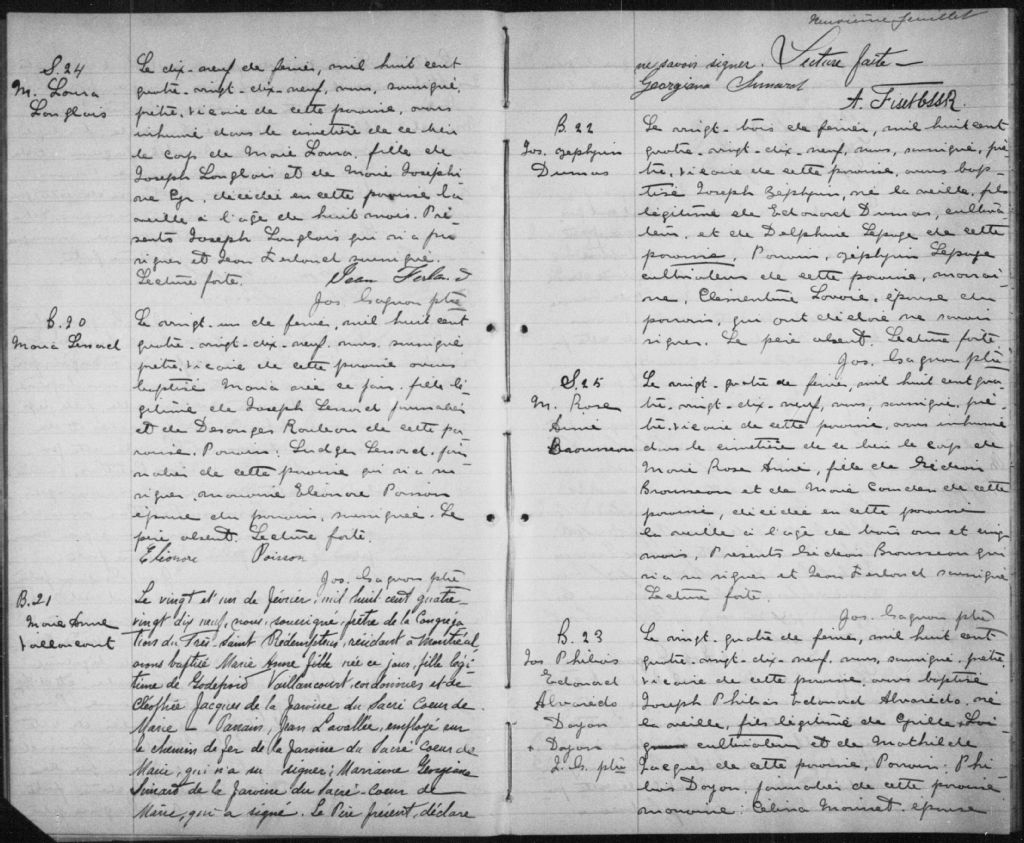 S. 24
M. Loura
Longlois
Le dix-neuf de fevrier, mil huit cent
quatre-vingt-dix-neuf, nous, soussigné,
prêtre, vicaire de cette paroisse, avons
inhumé dans le cimetière de ce lieu
le corps de Marie Loura, fille de
Joseph Longlois et de Marie Josephi
ne Cyr, décédée en cette paroisse la
veille à l'âge de huit mois. Pré-
sents Joseph Longlois qui n'a pu
signer et Jean Ferland soussigné.
Lecture faite. Jean Ferland
Jos. Gagnon ptre
B. 20
Maria Lessard
Le vingt-un de fevrier, mil huit cent
quatre-vingt-dix-neuf, nous, soussigné
prêtre, vicaire de cette paroisse avons
baptisé Maria née ce jour, fille lé-
gitime de Joseph Lessard journalier
et de Desanges Rouleau de cette pa
roisse. Parrain, Ludger Lessard, jour
nalier de cette paroisse qui n'a su
signer, marraine Eléonore Poisson
épouse du parrain, soussignée. Le
père absent. Lecture faite.
Eléonore Poisson
Jos. Gagnon ptre
B. 21
Marie Anne
Vaillancourt
Le vingt et un de février, mil huit cent quatre-
vingt dix neuf, nous, soussigné, prêtre de la Congréga
tions du Très-saint Rédempteur, résidant à Montréal,
avons baptisé Marie Anne fille née ce jour, fille légi
time de Godefroid Vaillancourt, cordonnier et de
Cléophée Jacques de la Paroisse du Sacré Coeur de
Marie - Parrain, Jean Lavallée, employé sur
le chemin de fer de la Paroisse du Sacré Coeur de
Marie, qui n'a su signer; Marraine Georgiana
Simard de la Paroisse du Sacré-Coeur de
Marie, qui a signé. Le Père présent, déclare
Neuvième feuillet
ne savoir signer. Lecture faite -
Georgiana Simard
A. Fiset CSSR.
B. 22
Jos. Zéphyrin
Dumas
Le vingt-trois de fevrier, mil huit cent
quatre-vingt-dix-neuf, nous, soussigné, prê-
tre, vicaire de cette paroisse, avons bap-
tisé Joseph Zéphyrin, né la veille, fils
légitime de Edouard Dumas, cultiva
teur, et de Delphine Lepage de cette
paroisse, Parrain, Zéphyrin Lepage
cultivateur de cette paroisse, marrai
ne, Clémentine Lavoie, épouse du
parrain, qui ont déclaré ne savoir
signer. Le père absent. Lecture faite
Jos. Gagnon ptre
S. 25
M. Rose
Anna
Brousseau
Le vingt-quatre de fevrier, mil huit cent qua
tre-vingt-dix-neuf, nous, soussigné, prê-
tre, vicaire de cette paroisse, avons inhumé
dans le cimetière de ce lieu le corps de
Marie Rose Anna, fille de Gédéon
Brousseau et de Marie Couden de cette
paroisse, décédée en cette paroisse
la veille à l'âge de trois ans et cinq
mois. Présents Gédéon Brousseau qui
n'a su signer et Jean Ferland soussigné
Lecture faite.
Jos. Gagnon ptre
B. 23
Jos Philéas
Edouard
Alvarédo
Doyon
+ Doyon
J. G. ptre
Le vingt-quatre de fevrier, mil huit cent
quatre-vingt-dix-neuf, nous, soussigné, prêtre,
vicaire de cette paroisse, avons baptisé
Joseph Philéas Edouard Alvarédo, né
la veille, fils légitime de
cultivateur et de Mathilde
Jacques de cette paroisse, Parrain, Phi-
léas Doyon, journalier de cette paroisse
marraine: Célina épouse